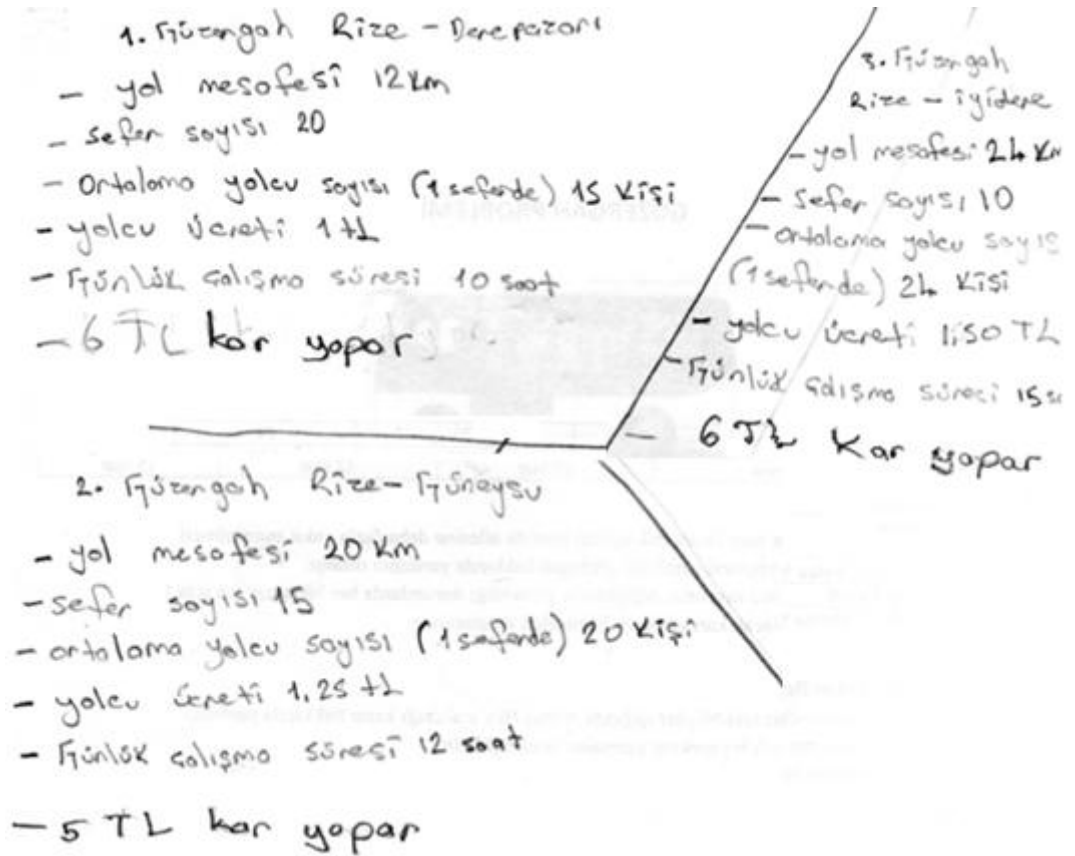 1. Güzengah Rize - Derepazarı
- yol mesafesi 12 km
- sefer sayısı 20
- Ortalama yolcu sayısı (1 seferde) 15 Kişi
- yolcu ücreti 1 tL
- Günlük çalışma süresi 10 saat
- 6 TL kar yapar
2. Güzengah Rize - Güneysu
- yol mesafesi 20 km
- sefer sayısı 15
- ortalama yolcu sayısı (1 seferde) 20 Kişi
- yolcu ücreti 1.25 tL
- Günlük çalışma süresi 12 saat
- 5 TL kar yapar
3. Güzengah
Rize - iyidere
- yol mesafesi 24 Km
- sefer sayısı 10
- ortalama yolcu sayıs
(1 seferde) 24 Kişi
- yolcu ücreti 1,50 TL
- Günlük çalışma süresi 15 sa
- 6 TL Kar yapar